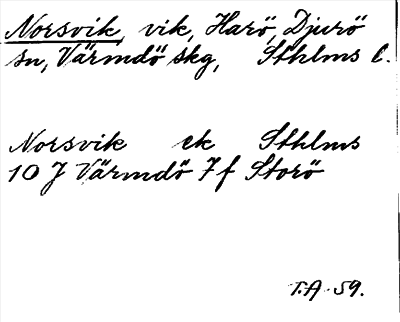 Norsvik, vik, Harö, Djurö
sn, Värmdö skg, Sthlms l.
Norsvik ek Sthlms
10 J Värmdö 7f Storö
T.A. 59.